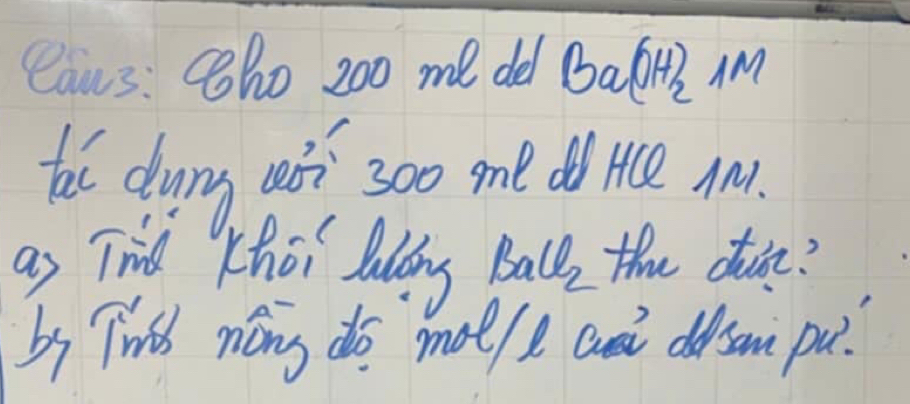 Câu 3: Cho 200 ml dd Ba(OH)₂ 1M
tác dụng với 300 ml dd HCl 1M.
a) Tính khối lượng BaCl₂ thu được?
b) Tính nồng độ mol/l của dd sau pứ?